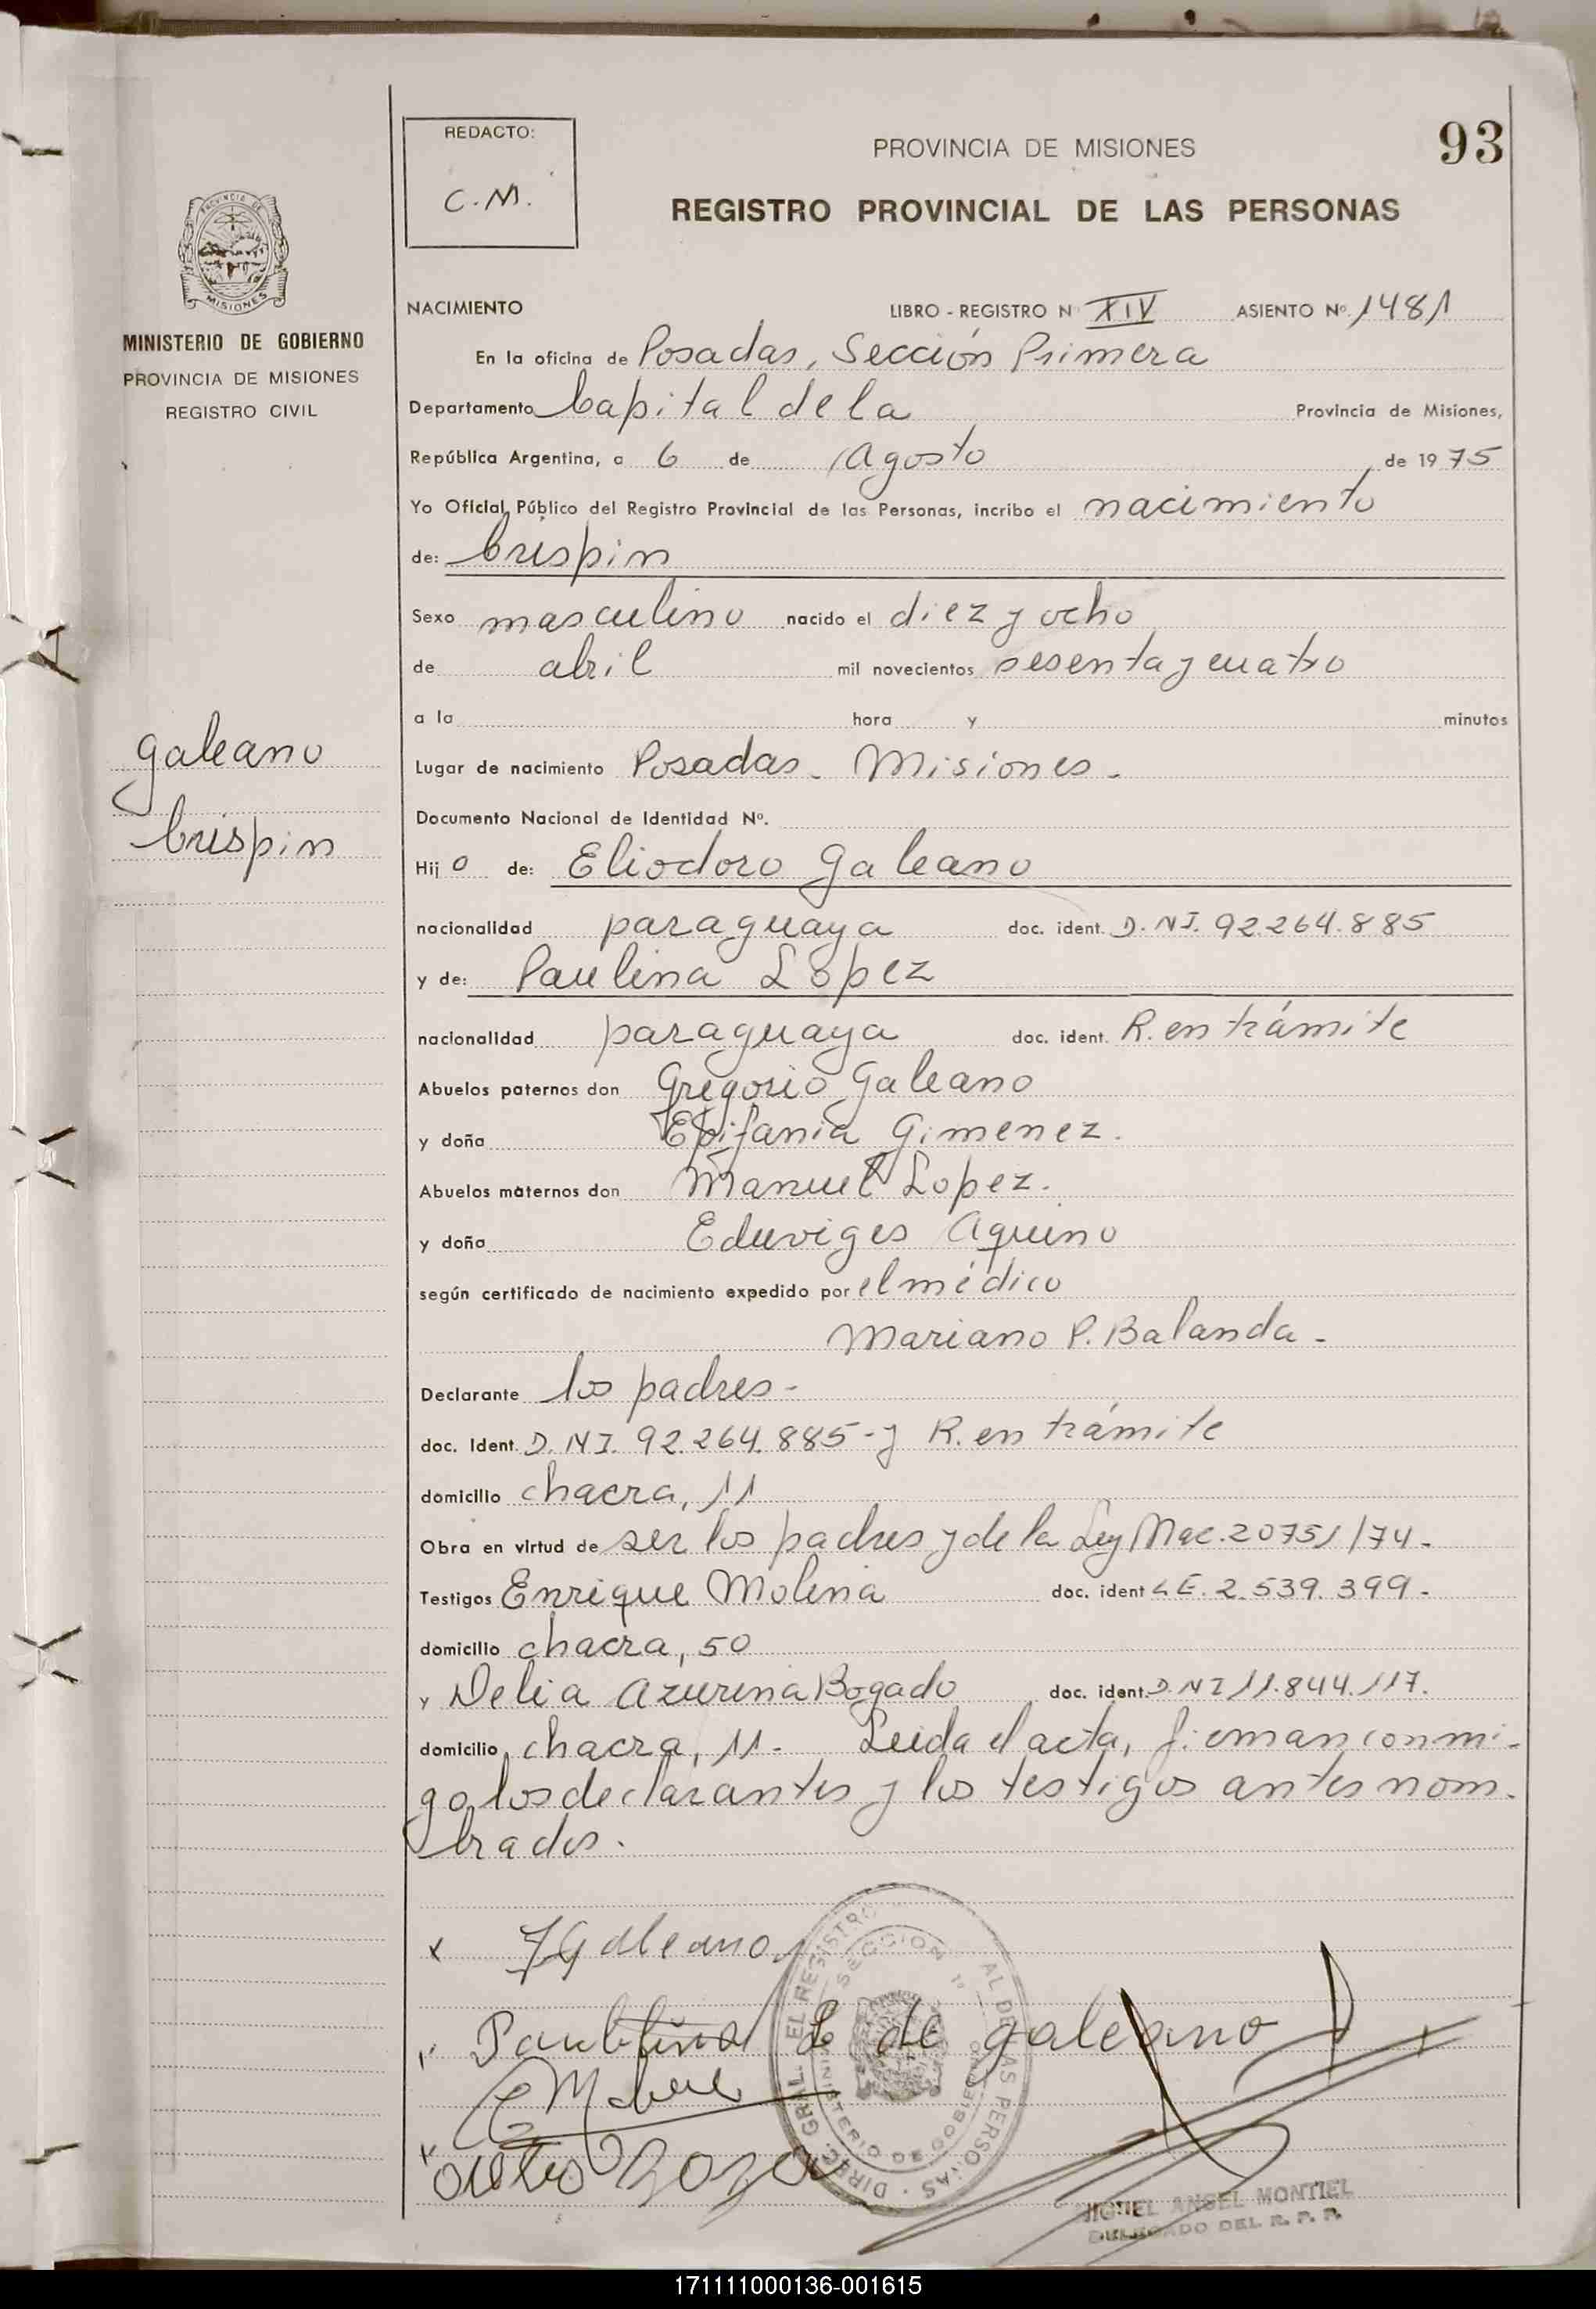 REDACTO:
C.M.
PROVINCIA DE MISIONES
93
REGISTRO PROVINCIAL DE LAS PERSONAS
PROVINCIA DE
MISIONES
MINISTERIO DE GOBIERNO
PROVINCIA DE MISIONES
REGISTRO CIVIL
NACIMIENTO LIBRO - REGISTRO Nº XIV ASIENTO Nº. 1481
En la oficina de Posadas, Sección Primera
Departamento Capital de la Provincia de Misiones,
República Argentina, a 6 de Agosto de 1975
Yo Oficial Público del Registro Provincial de las Personas, incribo el nacimiento
de: Crispin
Sexo masculino nacido el diez y ocho
de abril mil novecientos sesenta y cuatro
a la hora y minutos
Galeano
Crispin
Lugar de nacimiento Posadas. Misiones.
Documento Nacional de Identidad Nº.
Hijo de: Eliodoro Galeano
nacionalidad paraguaya doc. ident. D.N.I. 92.264.885
y de: Paulina Lopez
nacionalidad paraguaya doc. ident. R. en trámite
Abuelos paternos don Gregorio Galeano
y doña Epifania Gimenez.
Abuelos maternos don Manuel Lopez.
y doña Eduviges Aquino
según certificado de nacimiento expedido por el médico
Mariano P. Balanda -
Declarante los padres -
doc. Ident. D.N.I. 92.264.885 - y R. en trámite
domicilio chacra, 11
Obra en virtud de ser los padres y de la Ley Nac. 20751/74.
Testigos Enrique Molina doc. ident L.E. 2.539.399 -
domicilio chacra, 50
y Delia Azurena Bogado doc. ident. D.N.I 11.844.117.
domicilio chacra, 11 - Leida el acta, firman conmi-
go los declarantes y los testigos antes nom-
brados.
x Galeano
Paulina L de galeano
DIREC. GRAL. EL REGISTRO AL DE LAS PERSONAS
SECCION 1º
MINISTERIO DE GOBIERNO
MIGUEL ANGEL MONTIEL
DELEGADO DEL R. P. P.
171111000136-001615